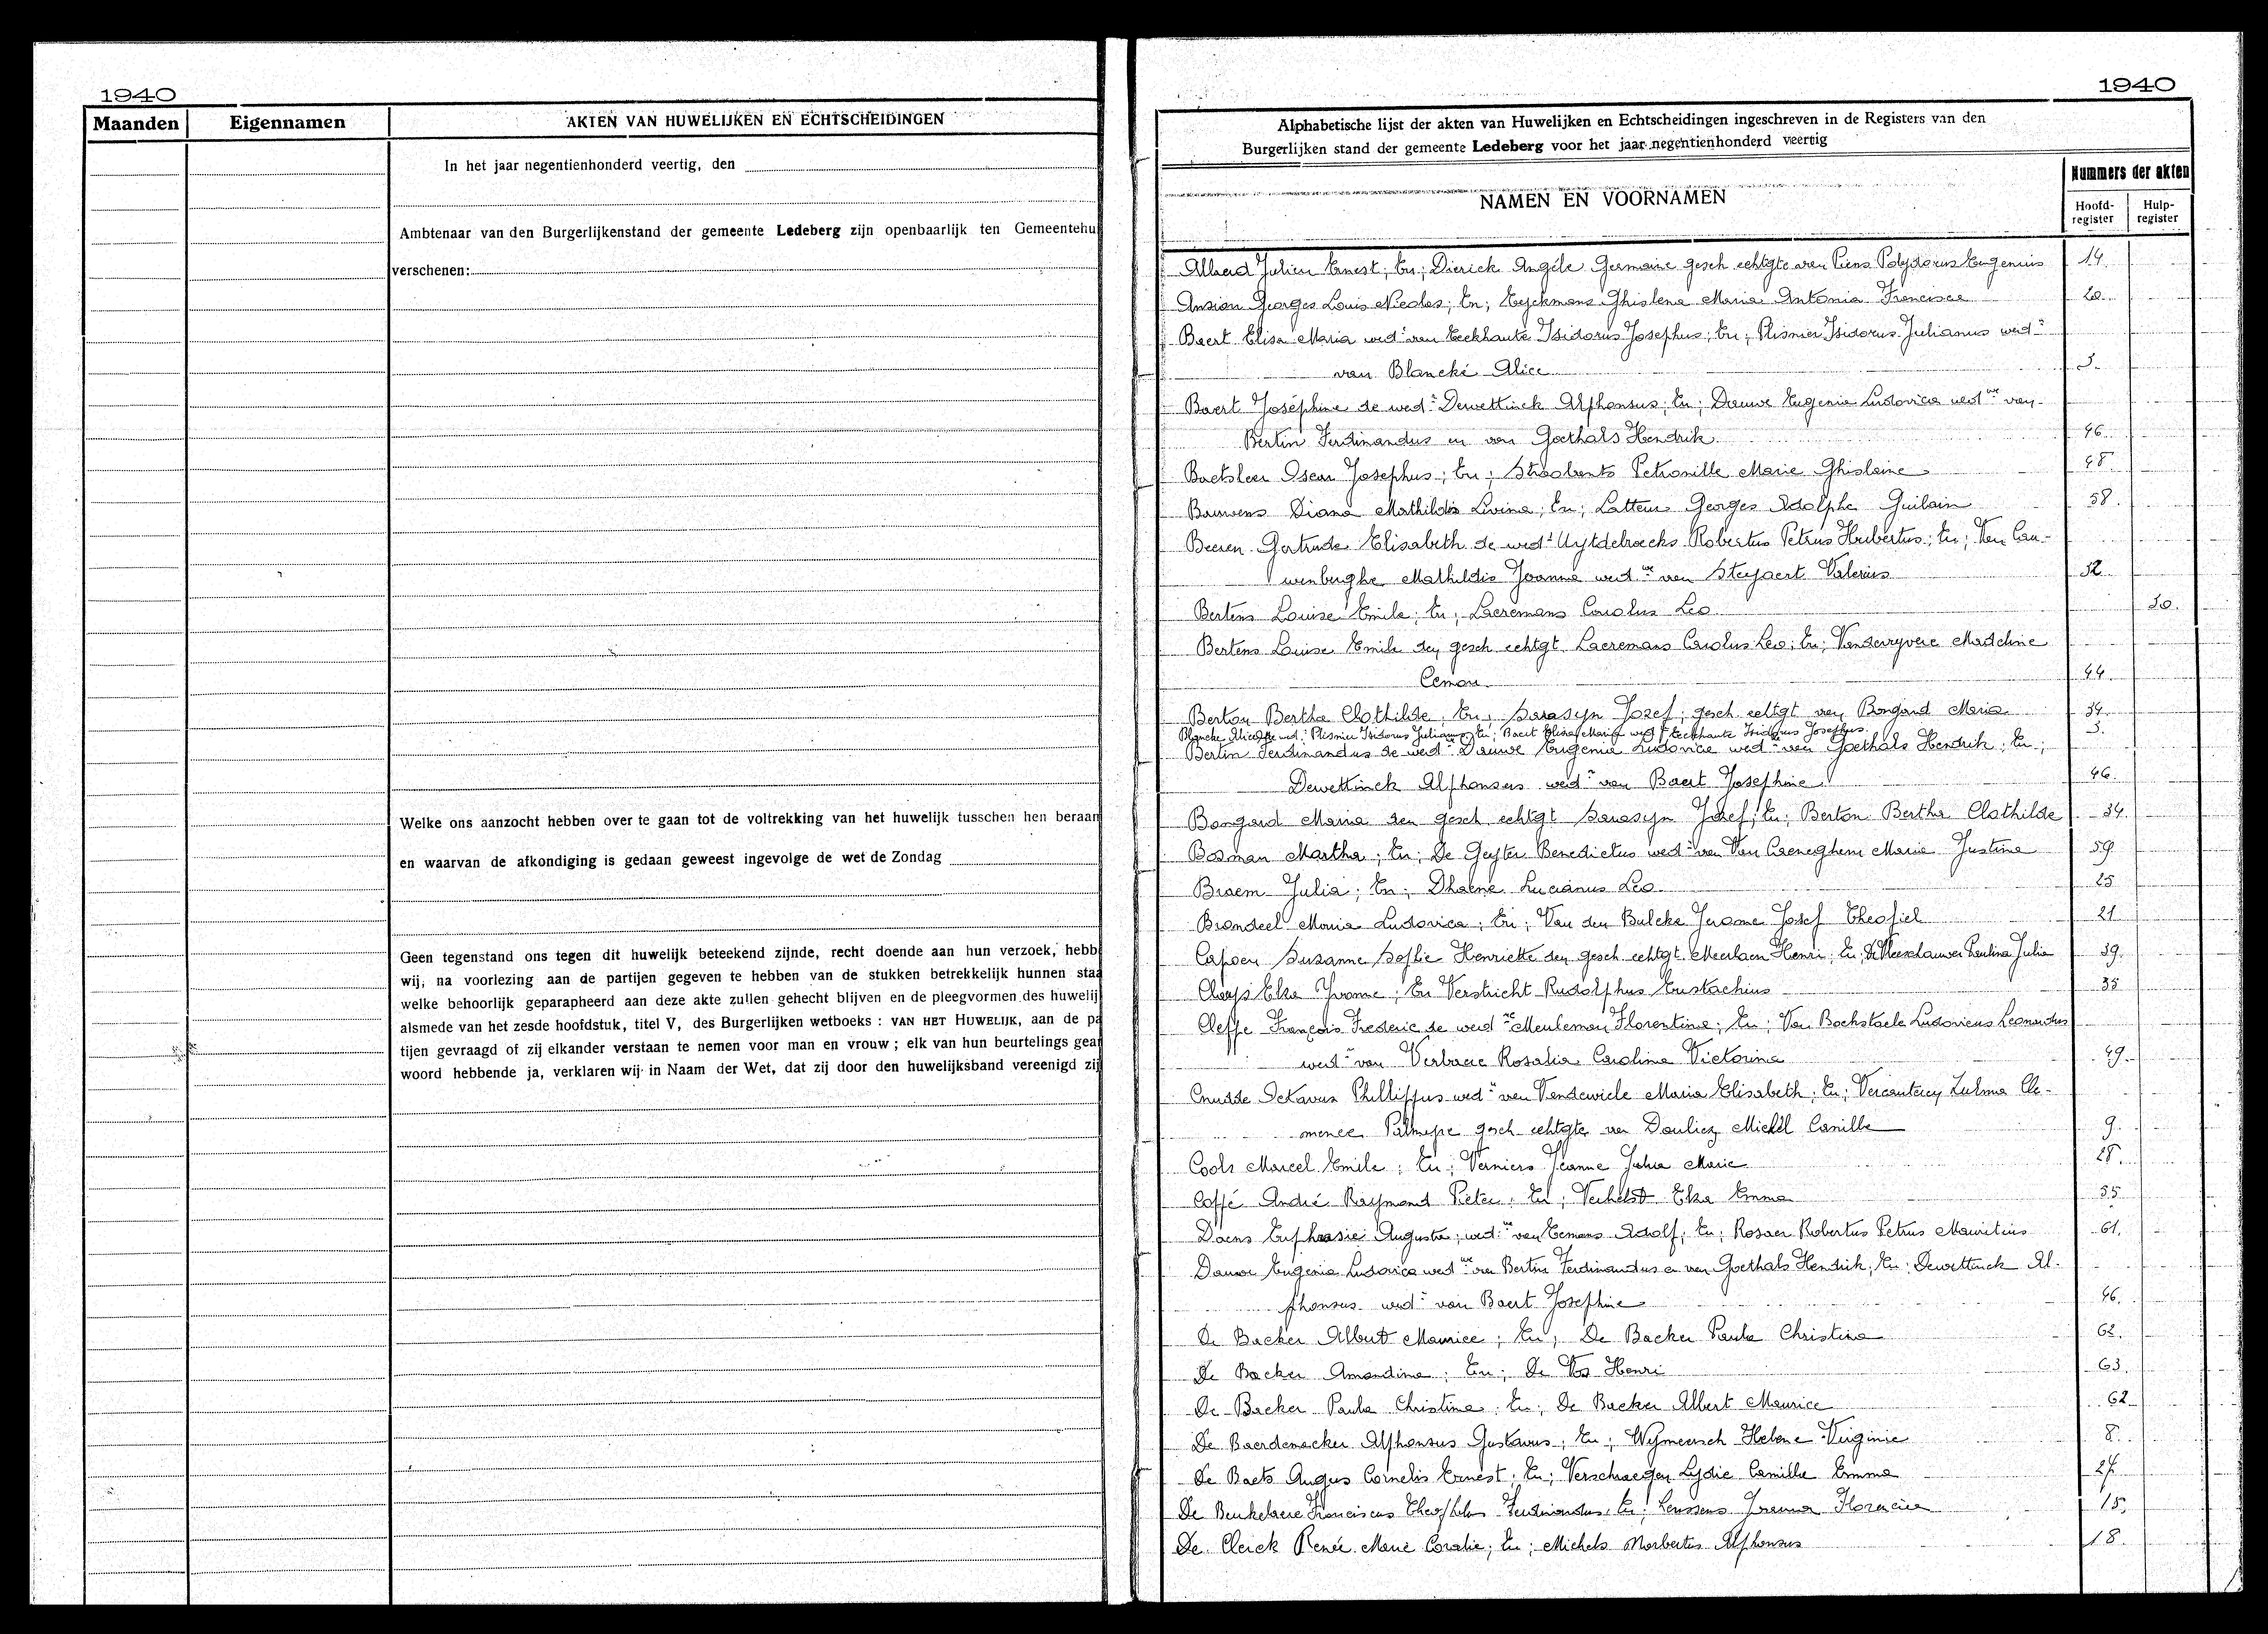 1940
Maanden Eigennamen AKTEN VAN HUWELIJKEN EN ECHTSCHEIDINGEN
In het jaar negentienhonderd veertig, den
Ambtenaar van den Burgerlijkenstand der gemeente Ledeberg zijn openbaarlijk ten Gemeentehu
verschenen:
Welke ons aanzocht hebben over te gaan tot de voltrekking van het huwelijk tusschen hen beraam
en waarvan de afkondiging is gedaan geweest ingevolge de wet de Zondag
Geen tegenstand ons tegen dit huwelijk beteekend zijnde, recht doende aan hun verzoek, hebb
wij, na voorlezing aan de partijen gegeven te hebben van de stukken betrekkelijk hunnen staa
welke behoorlijk geparapheerd aan deze akte zullen gehecht blijven en de pleegvormen des huwelij
alsmede van het zesde hoofdstuk, titel V, des Burgerlijken wetboeks : VAN HET HUWELIJK, aan de pa
tijen gevraagd of zij elkander verstaan te nemen voor man en vrouw ; elk van hun beurtelings gea
woord hebbende ja, verklaren wij in Naam der Wet, dat zij door den huwelijksband vereenigd zij
1940
Alphabetische lijst der akten van Huwelijken en Echtscheidingen ingeschreven in de Registers van den
Burgerlijken stand der gemeente Ledeberg voor het jaar negentienhonderd veertig
NAMEN EN VOORNAMEN
Nummers der akten
Hoofd-register Hulp-register
Julien Ernest; En; Dierick Angèle Germaine gesch echtgte van Piens Polydorus Eugenius 14.
Georges Louis Nicolas; En; Eyckmans Ghislena Maria Antonia Francisca 20.
Baert Elisa Maria wedᵉ van Eeckhaute Isidorus Josephus; En; Plismier Isidorus Julianus wedʳ
van Blancke Alice 3.
Baert Joséphine de wedʳ Dewettinck Alphonsus; En; Dauwe Eugenia Ludovica wedᵘᵉ van
Bertin Ferdinandus en van Goethals Hendrik 46.
Baetsleer Oscar Josephus; En; Straebants Petronille Marie Ghislaine 48.
Bauwens Diana Mathildis Livina; En; Latteur Georges Adolphe Guilain 58.
Beeren Gertrude Elisabeth de wedʳ Uytdebroecks Robertus Petrus Hubertus; En; Van Cau-
wenberghe Mathildis Joanna wedᵘᵉ van Steyaert Valerius 52.
Bertens Louise Emile; En; Laeremans Carolus Leo 10.
Bertens Louise Emile den gesch echtgt Laeremans Carolus Leo; En; Vanderyvere Madeline
44.
Berton Bertha Clothilde; En; Sarasyn Jozef; gesch echtgt van Bongard Maria 34
Blancke Alice de wedʳ Plismier Isidorus Julianus; En; Baert Elisa Maria wedᵉ Eeckhaute Isidorus Josephus 3.
Bertin Ferdinandus de wedᵘᵉ Dauwe Eugenia Ludovica wedᵘᵉ van Goethals Hendrik; En;
Dewettinck Alphonsus wedʳ van Baert Josephine 46.
Bongard Maria den gesch echtgt Sarasyn Jozef; En; Berton Bertha Clothilde 34.
Bosman Martha; En; De Geyter Benedictus wedʳ van Van Caeneghem Maria Justina 59
Braem Julia; En; Dhaene Lucianus Leo 25
Brondeel Maria Ludovica; En; Van den Bulcke Jerome Josef Theofiel 21.
Capoen Suzanne Sofie Henriette den gesch echtgt Meerlaen Henri; En; De Meerschauwer Paulina Julia 39.
Claeys Elza Yvonne; En Verstricht Rudolphus Eustachius 35
Cleppe François Frederic de wedᵘᵉ Meuleman Florentina; En; Van Bockstaele Ludovicus Leonardus
wedʳ van Verbraec Rosalia Carolina Victorina 49.
Cnudde Octavus Phillippus wedʳ van Vandewiele Maria Elisabeth; En; Vercauteren Zulma Cle-
mence gesch echtgte van Dauliez Michel Camille 9.
Cools Marcel Emile; En; Verniers Jeanne Julia Marie 28.
Coppé André Raymond Pieter; En; Verhelst Elza Emma 55
Daens Euphrasie Augusta; wedᵘᵉ van Eemans Adolf; En; Rosaer Robertus Petrus Mauritius 61.
Dauwe Eugenia Ludovica wedᵘᵉ van Bertin Ferdinandus en van Goethals Hendrik; En; Dewettinck Al-
phonsus wedʳ van Baert Josephine 46.
De Backer Albert Maurice; En; De Backer Paula Christina 62.
De Backer Amandina; En; De Vos Henri 63.
De Backer Paula Christina; En; De Backer Albert Maurice 62
De Baerdemacker Alphonsus Gustavus; En; Wymeersch Helene Virginie 8.
De Baets August Cornelis Ernest; En; Verschraegen Lydie Camille Emma 27
De Beukelaere Franciscus Theophilus Ferdinandus; En; Lenssens 15.
De Clerck Renée Marie Coralie; En; Michels Norbertus Alphonsus 18.